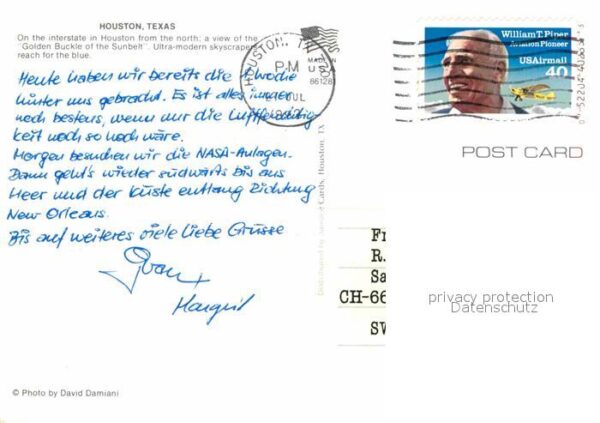 HOUSTON, TEXAS
On the interstate in Houston from the north: a view of the
"Golden Buckle of the Sunbelt". Ultra-modern skyscrapers
reach for the blue.
Heute haben wir bereits die 1. Woche
hinter uns gebracht. Es ist alles immer
noch bestens, wenn nur die Luftfeuchtig-
keit noch so hoch wäre.
Morgen besuchen wir die NASA-Anlagen.
Dann geht's wieder südwärts bis ans
Meer und der Küste entlang Richtung
New Orleans.
Bis auf weiteres viele liebe Grüsse
Margrit
© Photo by David Damiani
HOUSTON, TX
PM
JUL
MADE IN
U.S.
66128
Cards, Houston, TX
William T. Piper
Aviation Pioneer
USAirmail
40
POST CARD
Fr
R.
Sa
CH-66
SW
privacy protection
Datenschutz